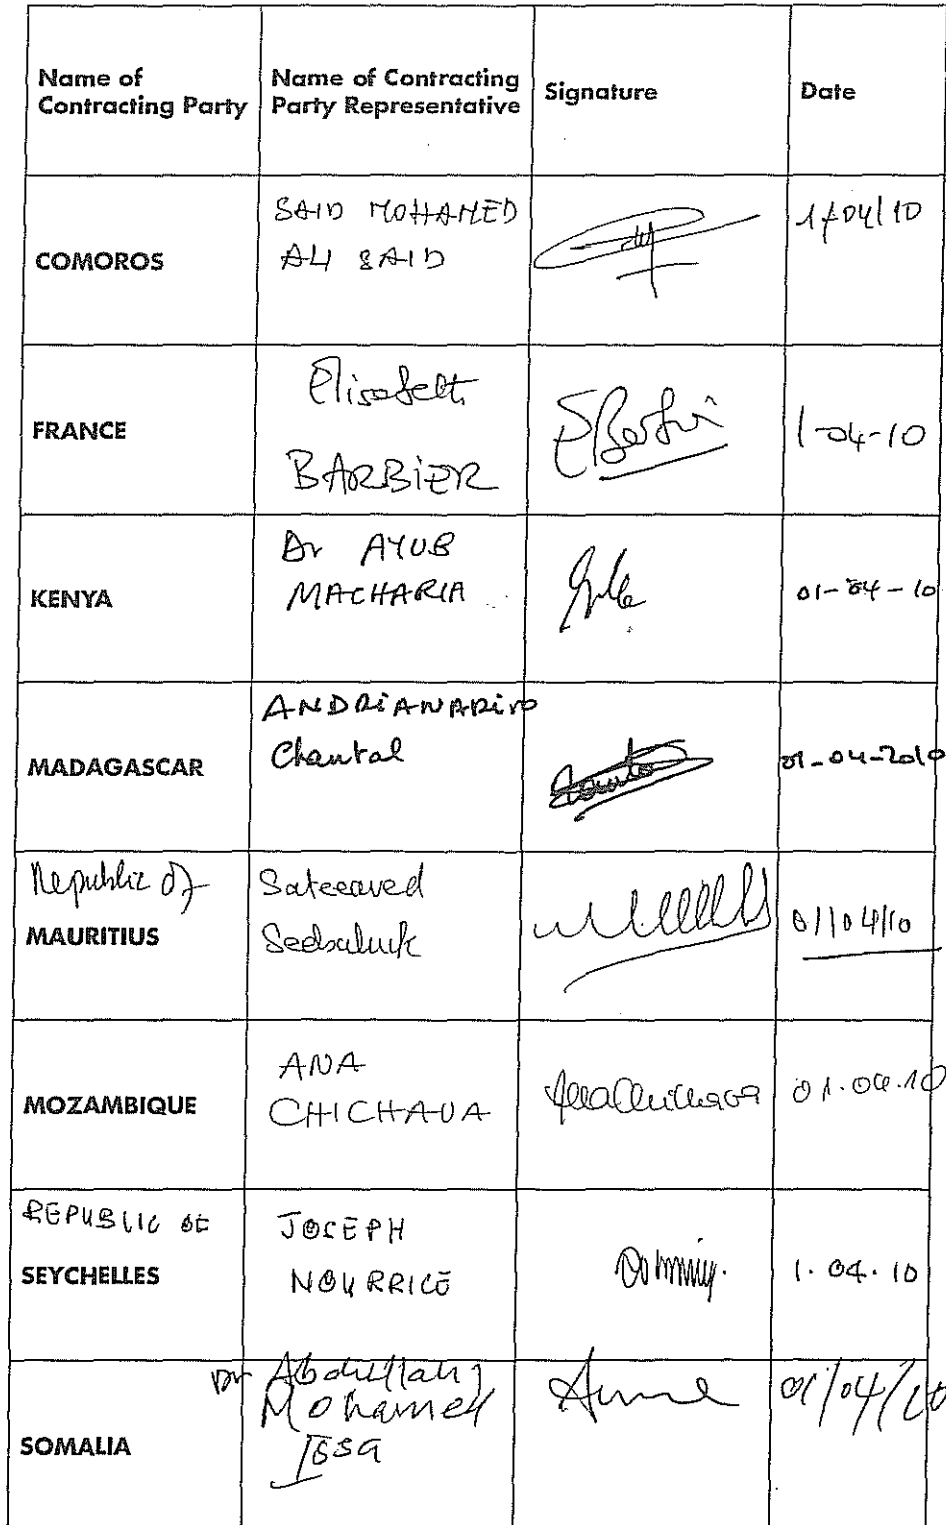 Name of
Contracting Party
Name of Contracting
Party Representative
Signature
Date
COMOROS
SAID MOHAMED
ALI SAID
1/04/10
FRANCE
Elisabeth
BARBIER
1-04-10
KENYA
Dr AYUB
MACHARIA
01-04-10
MADAGASCAR
ANDRIANARIVO
Chantal
01-04-2010
Republic of
MAURITIUS
01/04/10
MOZAMBIQUE
ANA
CHICHAVA
01.04.10
REPUBLIC OF
SEYCHELLES
JOSEPH
NOURRICE
1.04.10
SOMALIA
Dr Abdullahi
Mohamed
Issa
01/04/10